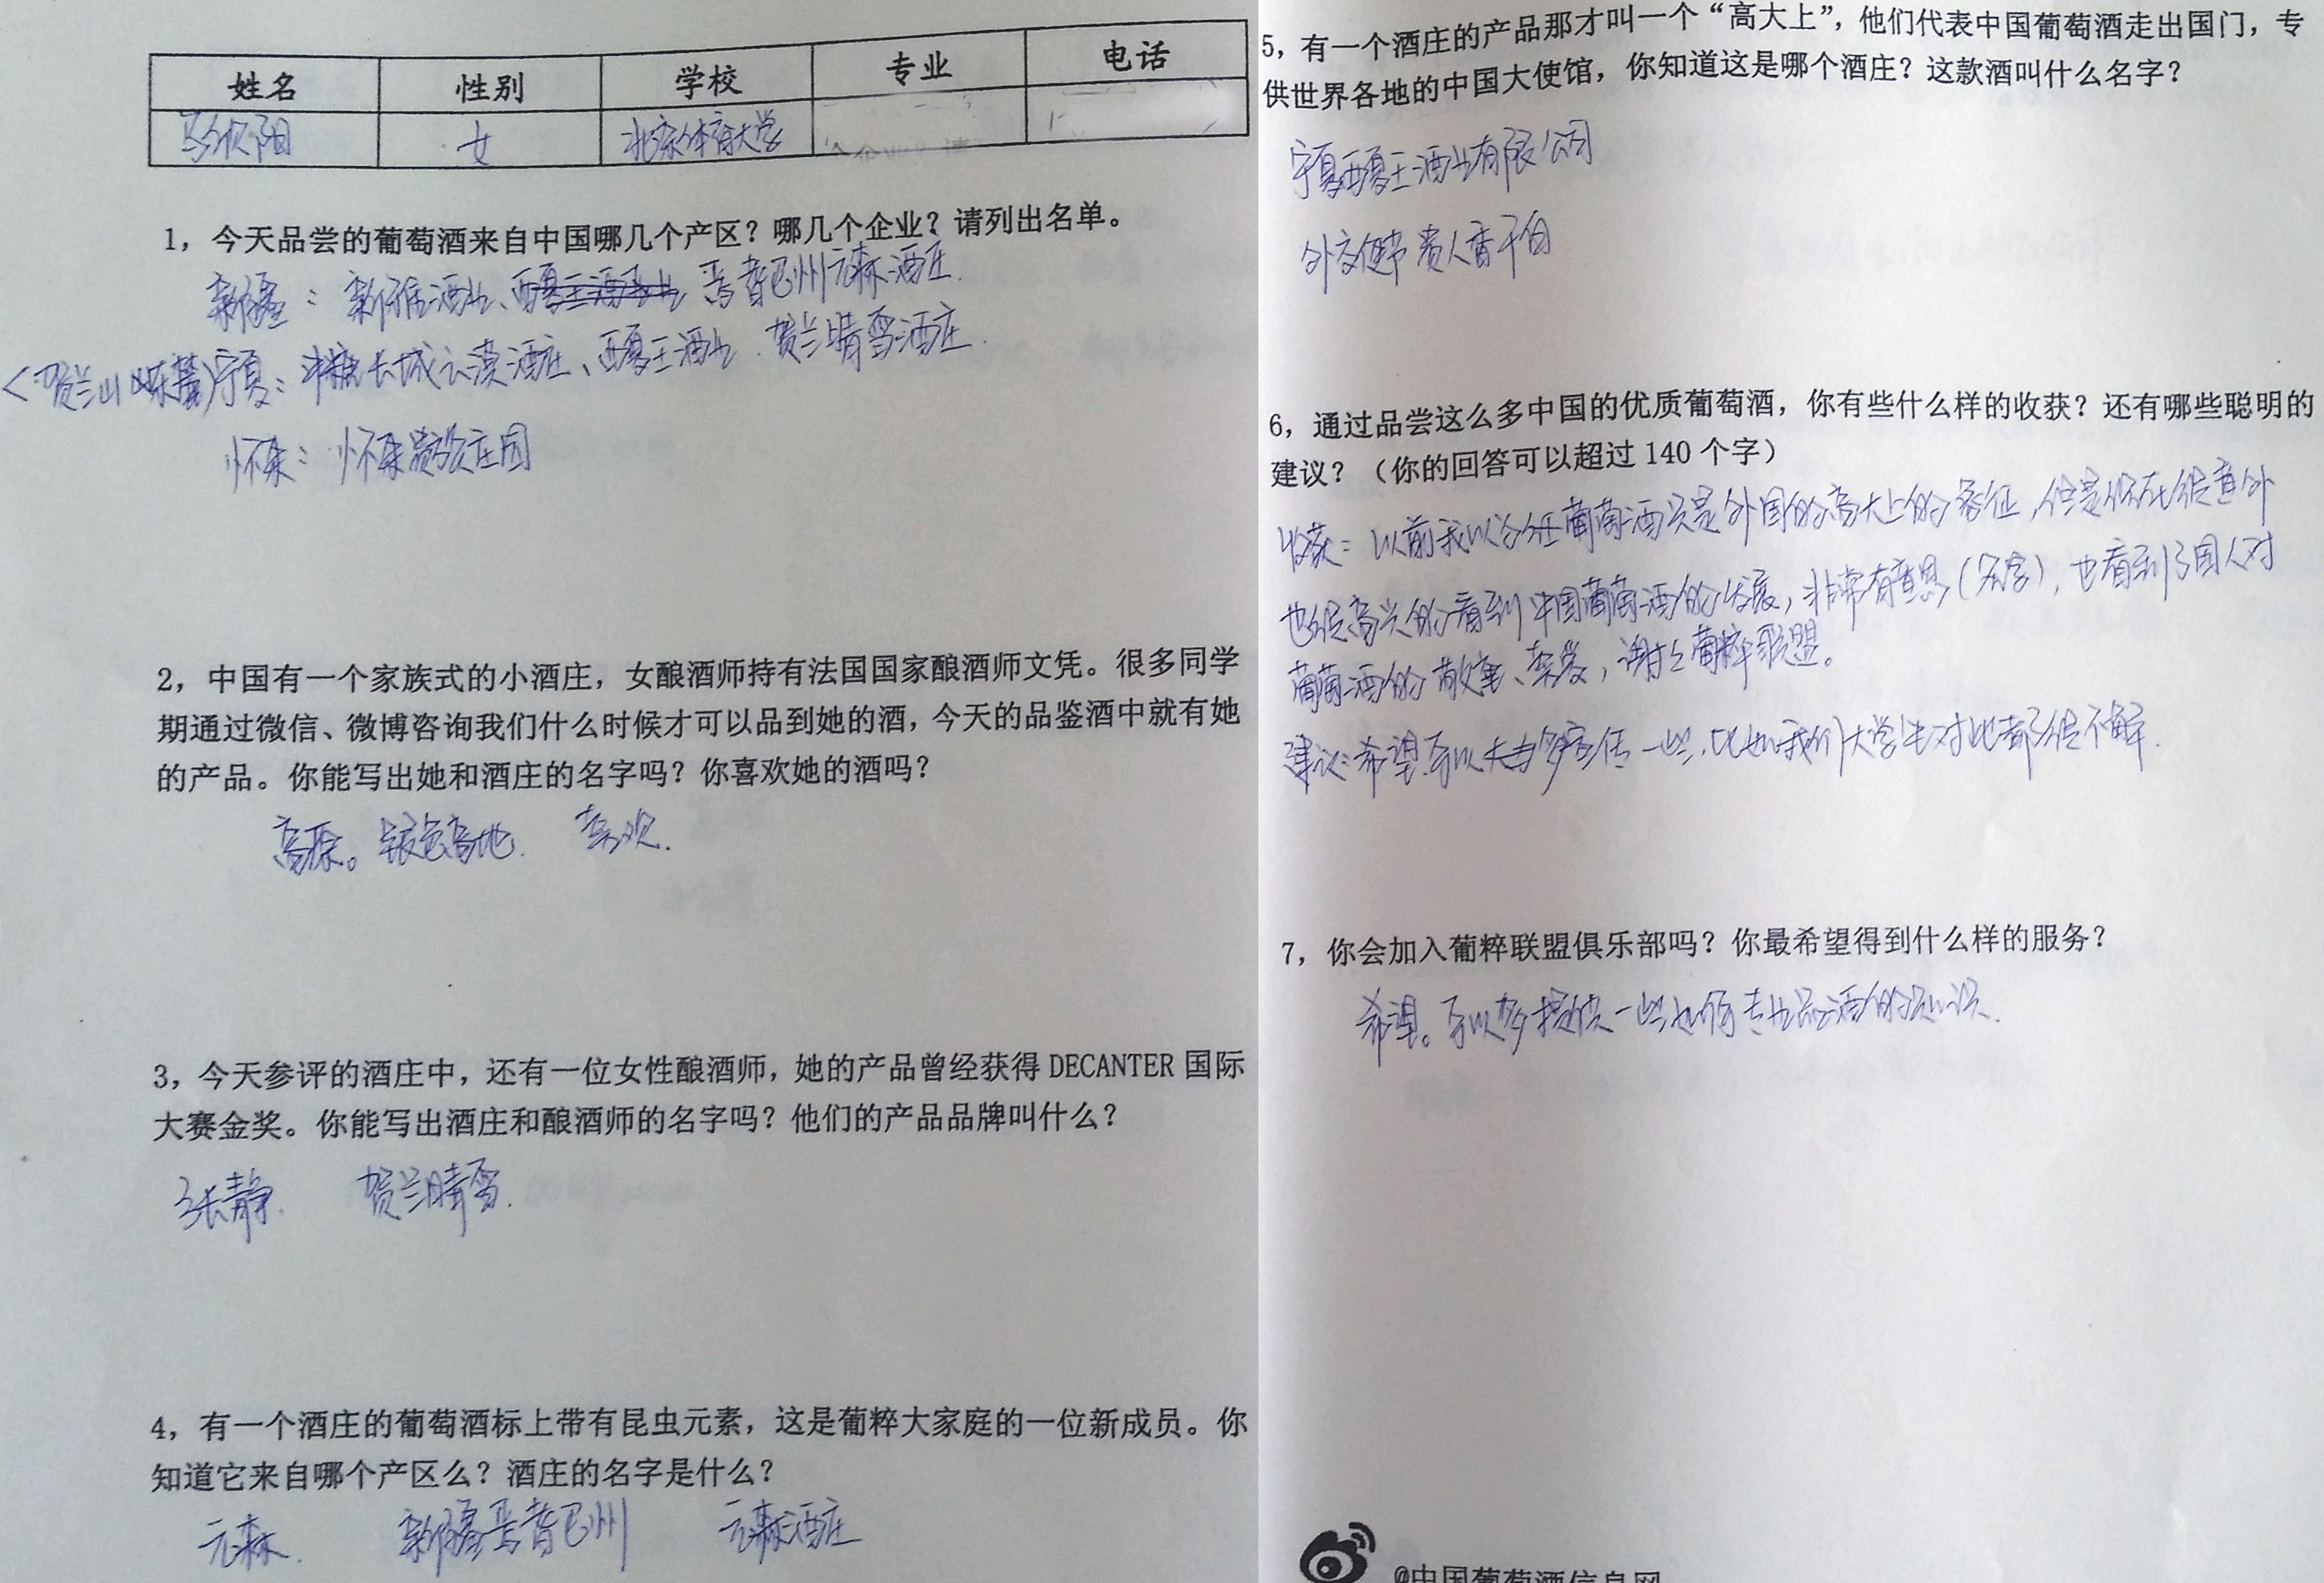 姓名 性别 学校 专业 电话
女 北京体育大学
1，今天品尝的葡萄酒来自中国哪几个产区？哪几个企业？请列出名单。
新疆：新雅酒业、西夏王酒业 焉耆巴州元森酒庄.
(贺兰山东麓)宁夏：中粮长城云漠酒庄、西夏王酒业.贺兰晴雪酒庄.
怀来：怀来贵族庄园
2，中国有一个家族式的小酒庄，女酿酒师持有法国国家酿酒师文凭。很多同学
期通过微信、微博咨询我们什么时候才可以品到她的酒，今天的品鉴酒中就有她
的产品。你能写出她和酒庄的名字吗？你喜欢她的酒吗？
高源。银色高地. 喜欢.
3，今天参评的酒庄中，还有一位女性酿酒师，她的产品曾经获得 DECANTER 国际
大赛金奖。你能写出酒庄和酿酒师的名字吗？他们的产品品牌叫什么？
张静. 贺兰晴雪.
4，有一个酒庄的葡萄酒标上带有昆虫元素，这是葡粹大家庭的一位新成员。你
知道它来自哪个产区么？酒庄的名字是什么？
元森. 新疆焉耆巴州 元森酒庄
5，有一个酒庄的产品那才叫一个“高大上”，他们代表中国葡萄酒走出国门，专
供世界各地的中国大使馆，你知道这是哪个酒庄？这款酒叫什么名字？
宁夏西夏王酒业有限公司
外交使节 贵人香干白
6，通过品尝这么多中国的优质葡萄酒，你有些什么样的收获？还有哪些聪明的
建议？（你的回答可以超过 140 个字）
收获：以前我以为红葡萄酒只是外国的高大上的象征，但是现在很意外
也很高兴的看到中国葡萄酒的发展，非常有意思(名字)，也看到了国人对
葡萄酒的敬重、荣誉，谢谢葡粹联盟。
建议：希望可以大力多宣传一些，比如我们大学生对此都很不解.
7，你会加入葡粹联盟俱乐部吗？你最希望得到什么样的服务？
希望。可以多提供一些专业品酒的知识.
@中国葡萄酒信息网